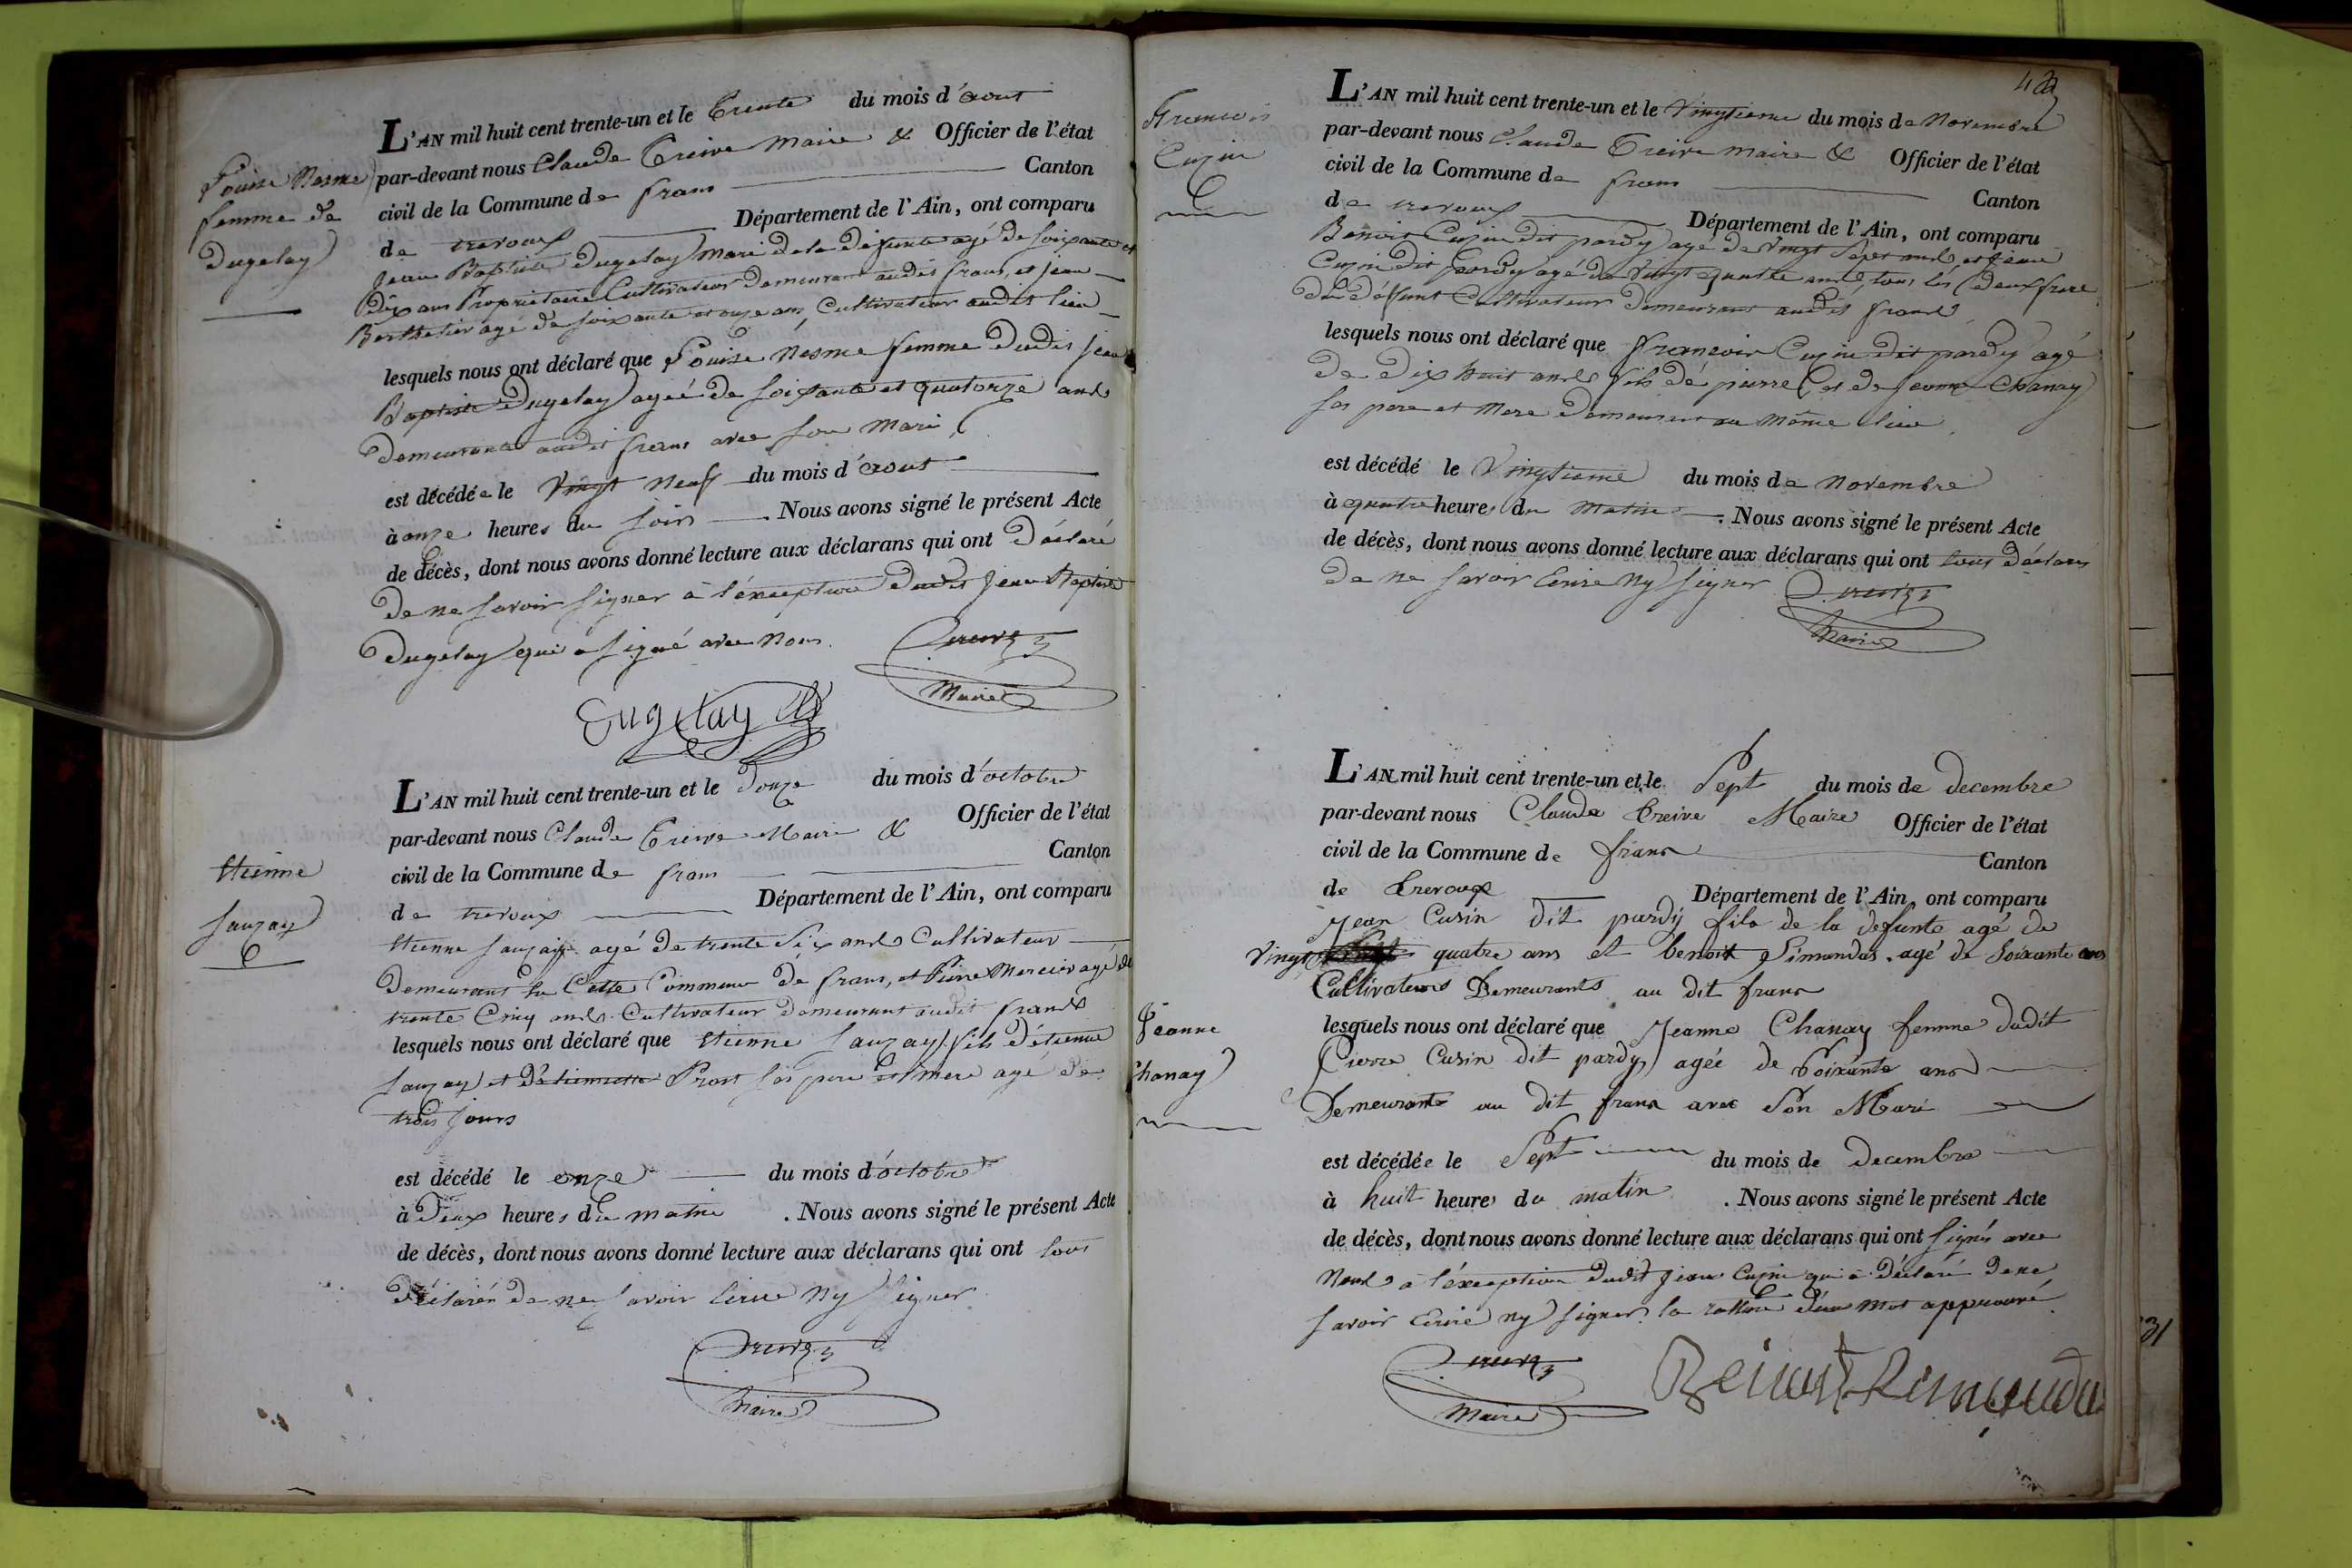 Louise Nesme
femme de
Dugelay
L'AN mil huit cent trente-un et le Trente du mois d'aout
par-devant nous Claude Treive Maire & Officier de l'état
civil de la Commune de frans Canton
de trevoux Département de l'Ain, ont comparu
Jean Baptiste Dugelay mari de la défunte agé de soixante et
dix ans Propriétaire Cultivateur demeurant audit frans, et jean
Berthelier agé de soixante et onze ans, Cultivateur audit lieu
lesquels nous ont déclaré que Louise Nesme femme dudit jean
Baptiste Dugelay agée de soixante et quatorze ans
demeurant audit frans avec son mari
est décédée le Vingt neuf du mois d'aout
à onze heures du soir Nous avons signé le présent Acte
de décès, dont nous avons donné lecture aux déclarans qui ont déclaré
de ne savoir signer à l'exception dudit jean Baptiste
Dugelay qui a signé avec nous.
Treive
Maire
Dugelay
Etienne
Sauzay
L'AN mil huit cent trente-un et le Douze du mois d'octobre
par-devant nous Claude Treive Maire & Officier de l'état
civil de la Commune de frans Canton
de trevoux Département de l'Ain, ont comparu
Etienne Sauzay agé de trente Six ans Cultivateur
demeurant en Cette Commune de frans, et Pierre Mercier agé de
trente Cinq ans Cultivateur demeurant audit frans
lesquels nous ont déclaré que Etienne Sauzay fils d'étienne
Sauzay et d'étiennette Prost ses pere et mere agé de
trois jours
est décédé le onze du mois d'octobre
à Deux heures du matin . Nous avons signé le présent Acte
de décès, dont nous avons donné lecture aux déclarans qui ont tous
déclarés de ne savoir Ecrire ny signer
Treive
Maire
42
Francois
Cuzin
L'AN mil huit cent trente-un et le Vingtieme du mois de Novembre
par-devant nous Claude Treive maire & Officier de l'état
civil de la Commune de frans Canton
de trevoux Département de l'Ain, ont comparu
Benoit Cuzin dit pardy agé de Vingt Sept ans et Jean
Cuzin dit pardy agé de Vingt quatre ans tous les deux frere
du défunt Cultivateur demeurant audit frans
lesquels nous ont déclaré que francois Cuzin dit pardy agé
de dix huit ans fils de pierre et de Jeanne Chanay
ses pere et Mere demeurant au même lieu
est décédé le Vingtieme du mois de Novembre
à quatre heures du matin . Nous avons signé le présent Acte
de décès, dont nous avons donné lecture aux déclarans qui ont tous déclarés
de ne savoir Ecrire ny signer
Treive
Maire
Jeanne
Chanay
L'AN mil huit cent trente-un et le Sept du mois de decembre
par-devant nous Claude treive Maire Officier de l'état
civil de la Commune de frans Canton
de trevoux Département de l'Ain, ont comparu
Jean Cusin dit pardy fils de la defunte agé de
Vingt quatre ans et benoit Simandas agé de Soixante ans
Cultivateurs Demeurants au dit frans
lesquels nous ont déclaré que Jeanne Chanay femme dudit
Pierre Cusin dit pardy agée de Soixante ans
Demeurante au dit frans avec Son Mari
est décédée le Sept du mois de decembre
à huit heures du matin . Nous avons signé le présent Acte
de décès, dont nous avons donné lecture aux déclarans qui ont signés avec
Nous à l'exception dudit jean Cuzin qui a déclaré de ne
savoir Ecrire ny signer. la rature d'un mot approuvé
Treive
Maire
31